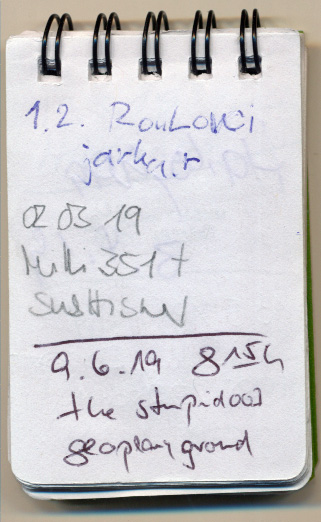 1.2. Roukonci
jarka.r
02 03 19
Milli 351 +
9.6.19 8 15 h
the stupid001
geoplayground